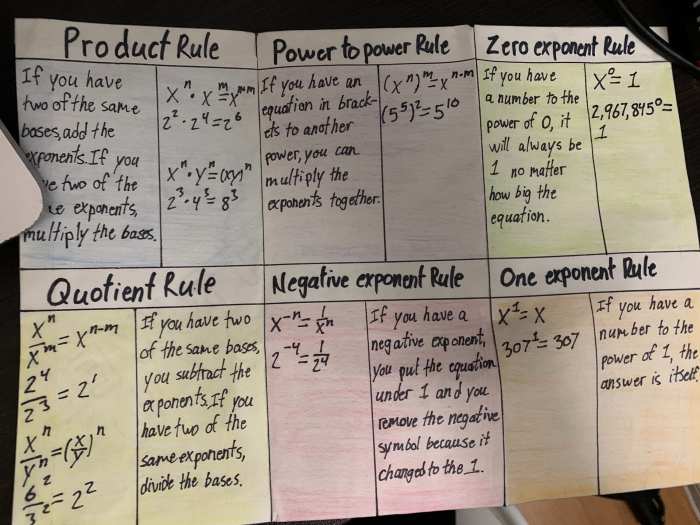 Product Rule
If you have
two of the same
bases, add the
exponents. If you
two of the
exponents,
multiply the bases.
xⁿ · xᵐ = xⁿ⁺ᵐ
2² · 2⁴ = 2⁶
xⁿ · yⁿ = (xy)ⁿ
2³ · 4³ = 8³
Power to power Rule
If you have an
equation in brack-
ets to another
power, you can
multiply the
exponents together.
(xⁿ)ᵐ = xⁿ·ᵐ
(5⁵)² = 5¹⁰
Zero exponent Rule
If you have
a number to the
power of 0, it
will always be
1 no matter
how big the
equation.
x⁰ = 1
2,967,845⁰ =
1
Quotient Rule
xⁿ/xᵐ = xⁿ⁻ᵐ
2⁴/2³ = 2¹
xⁿ/yⁿ = (x/y)ⁿ
6²/3² = 2²
If you have two
of the same bases,
you subtract the
exponents. If you
have two of the
same exponents,
divide the bases.
Negative exponent Rule
x⁻ⁿ = 1/xⁿ
2⁻⁴ = 1/2⁴
If you have a
negative exponent,
you put the equation
under 1 and you
remove the negative
symbol because it
changed to the 1.
One exponent Rule
x¹ = x
307¹ = 307
If you have a
number to the
power of 1, the
answer is itself